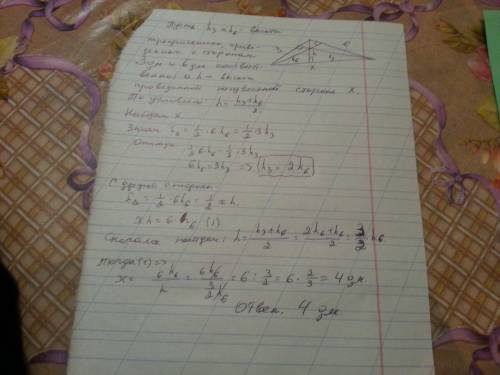 Пусть h₃ и h₆ - высоты
треугольника, прове-
денные к сторонам
3 дм и 6 дм соответ-
венно а h - высота
проведеная к неизвестной стороне x.
По условию: h = (h₃+h₆)/2
Найдем x.
Знаем S△ = 1/2 · 6h₆ = 1/2 · 3h₃
Отсюда
1/2 · 6h₆ = 1/2 · 3h₃
6h₆ = 3h₃ => h₃ = 2h₆
С другой стороны
S△ = 1/2 · 6h₆ = 1/2 x h.
x h = 6 h₆ (1)
Сначала найдем: h = (h₃+h₆)/2 = (2h₆+h₆)/2 = 3/2 h₆
тогда (1) =>
x = 6h₆/h = 6h₆/(3/2 h₆) = 6 : 3/2 = 6 · 2/3 = 4 дм
Ответ. 4 дм
3
6
h₆
h
h₃
x